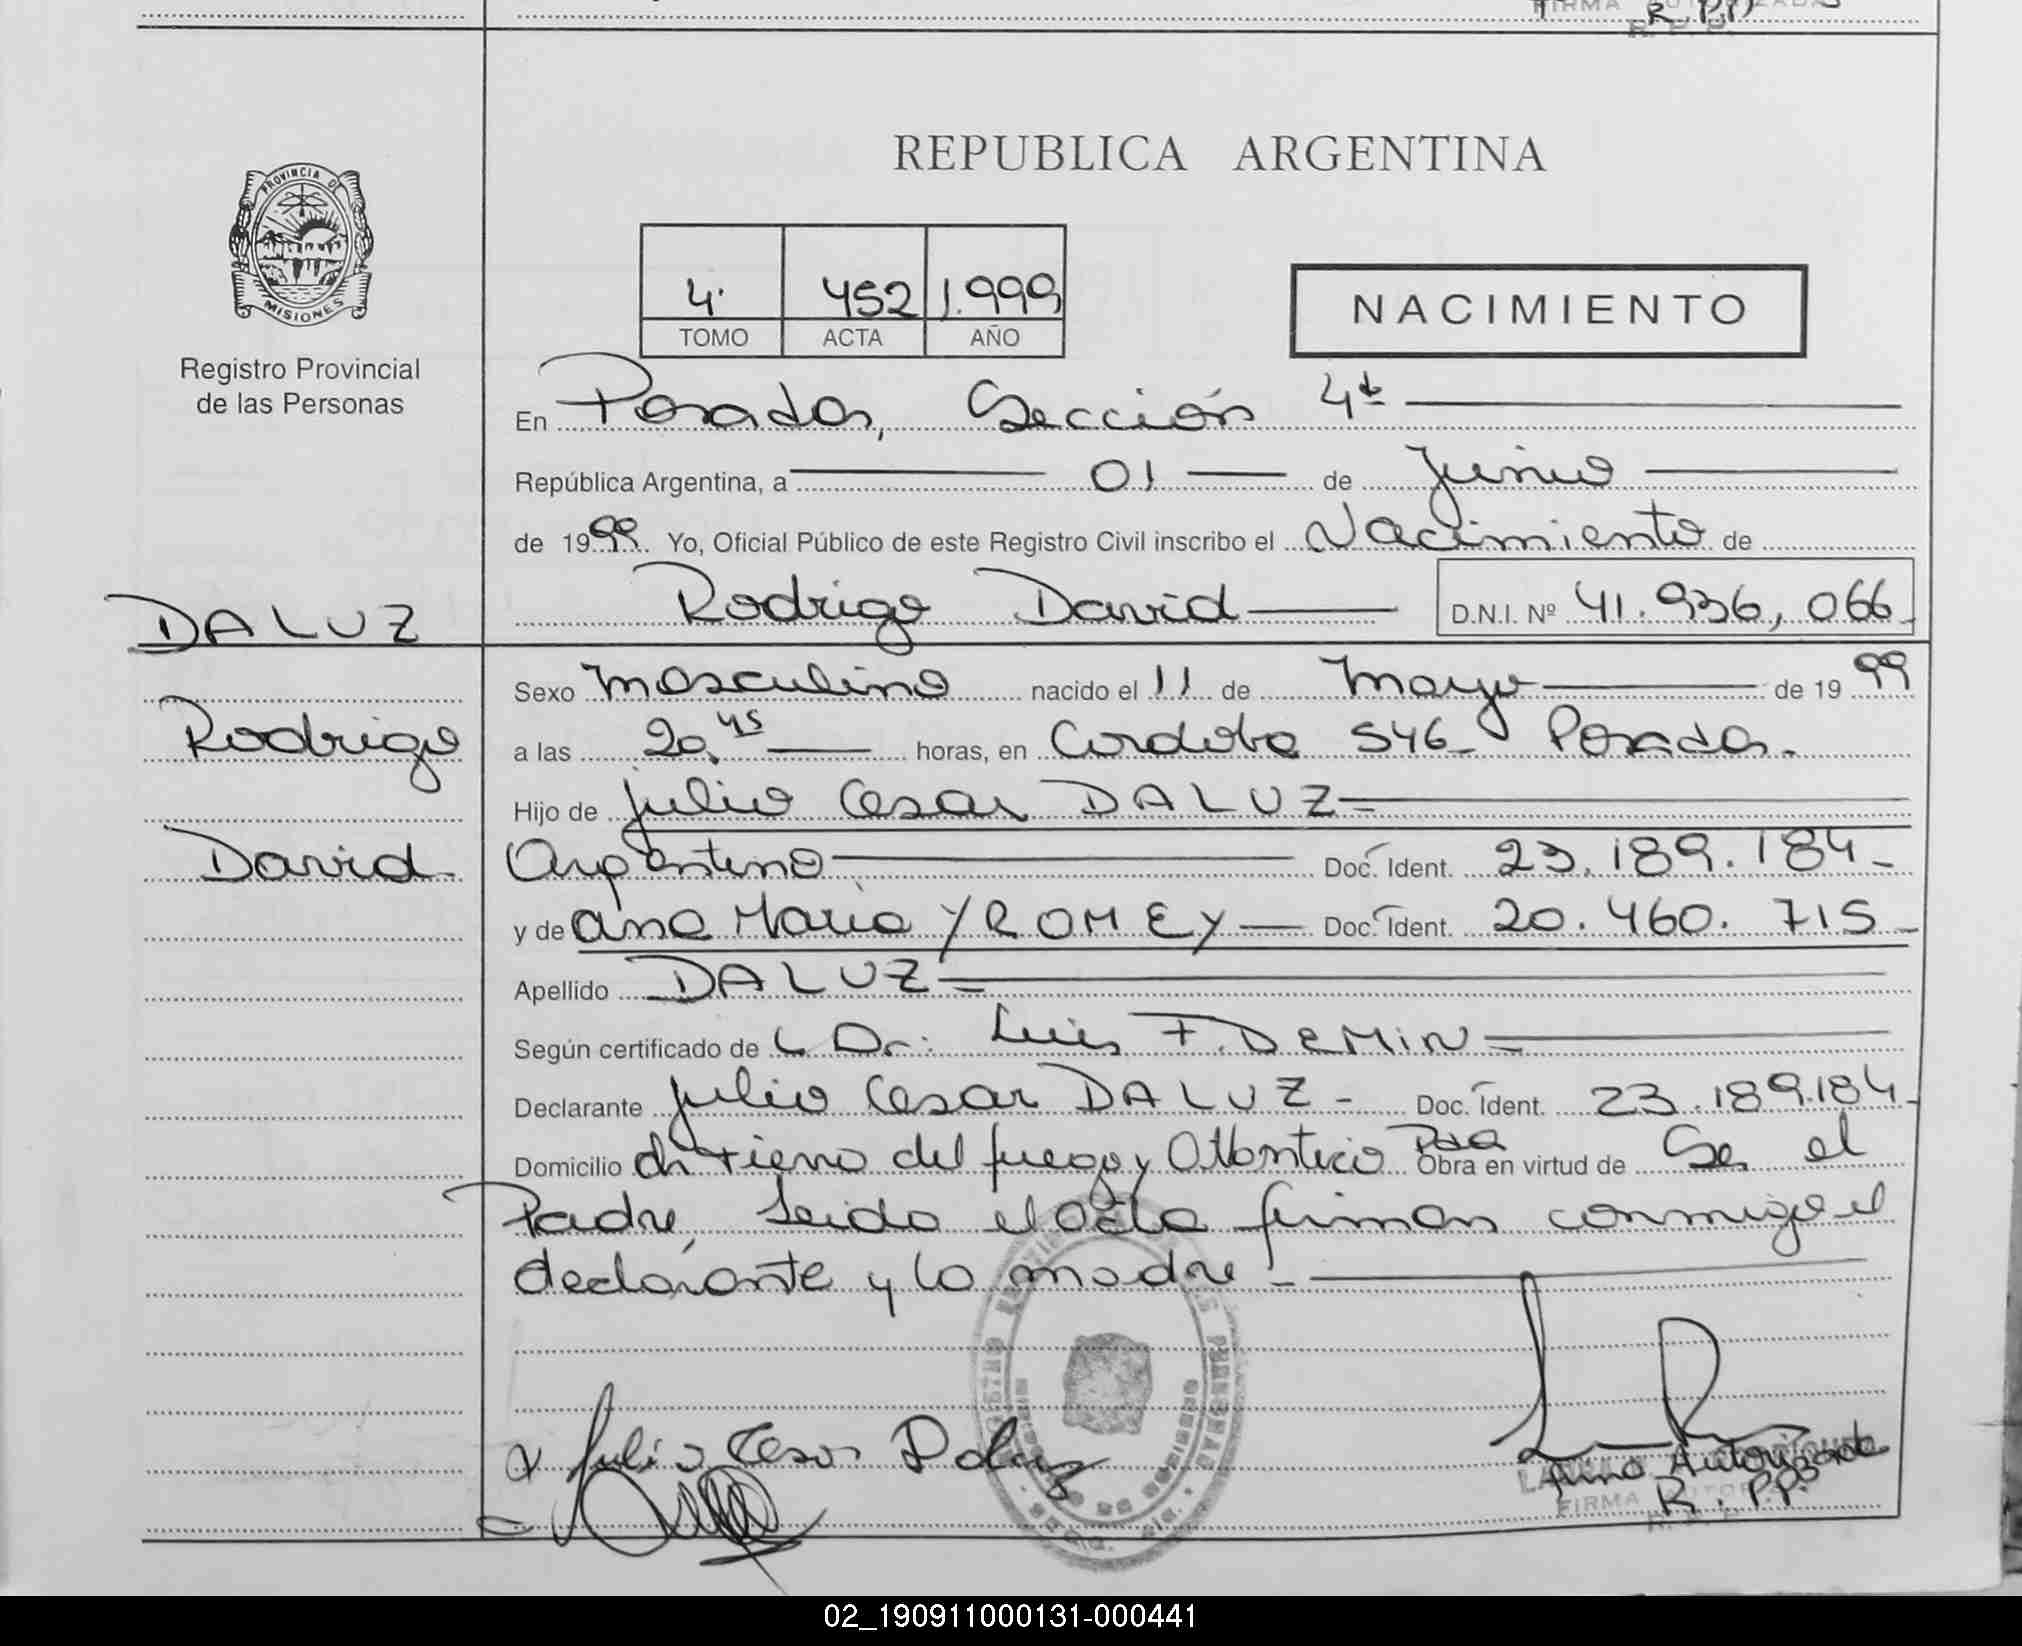 FIRMA AUTORIZADA
R. P.P.
PROVINCIA DE
MISIONES
Registro Provincial
de las Personas
REPUBLICA ARGENTINA
4 452 1.999
TOMO ACTA AÑO
NACIMIENTO
En Posadas, Sección 4ta
República Argentina, a 01 de Junio
de 1999 Yo, Oficial Público de este Registro Civil inscribo el Nacimiento de
Rodrigo David D.N.I. Nº 41.936,066
DALUZ
Rodrigo
David
Sexo Masculino nacido el 11 de Mayo de 1999
a las 20.45 horas, en Cordoba 546 Posadas.
Hijo de Julio Cesar DALUZ
Argentino Doc. Ident. 23.189.184
y de Ana Maria YROMEY Doc. Ident. 20.460.715
Apellido DALUZ
Según certificado de Dr: Luis F. DEMIN
Declarante Julio Cesar DALUZ - Doc. Ident. 23.189.184
Domicilio ch Tierra del fuego y Atlantico Pdas Obra en virtud de Ser el
Padre, Leida el acta firman conmigo el
declarante y la madre
Julio Cesar Daluz
Firma Autorizada
R. P.P.
FIRMA AUTORIZADA
02_190911000131-000441